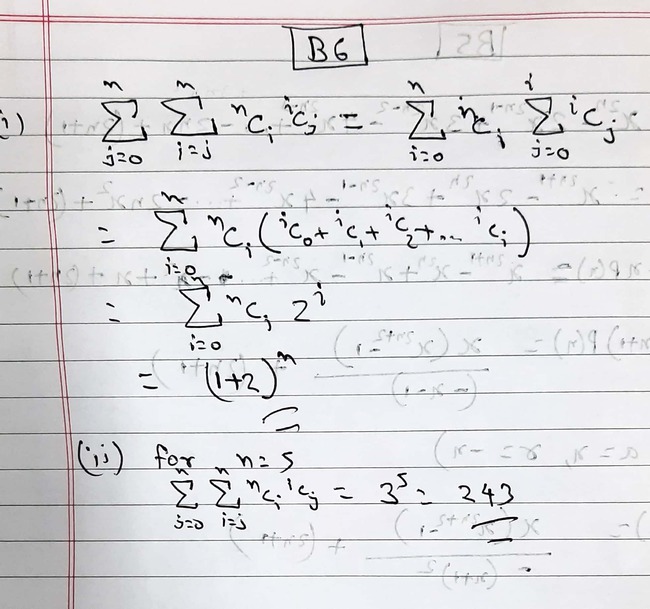 B6
i) ∑_{j=0}^{n} ∑_{i=j}^{n} ⁿCᵢ ⁱCⱼ = ∑_{i=0}^{n} ⁿCᵢ ∑_{j=0}^{i} ⁱCⱼ
= ∑_{i=0}^{n} ⁿCᵢ (ⁱC₀ + ⁱC₁ + ⁱC₂ + ... ⁱCᵢ)
= ∑_{i=0}^{n} ⁿCᵢ 2ⁱ
= (1+2)ⁿ
(ii) for n = 5
∑_{j=0}^{n} ∑_{i=j}^{n} ⁿCᵢ ⁱCⱼ = 3⁵ = 243